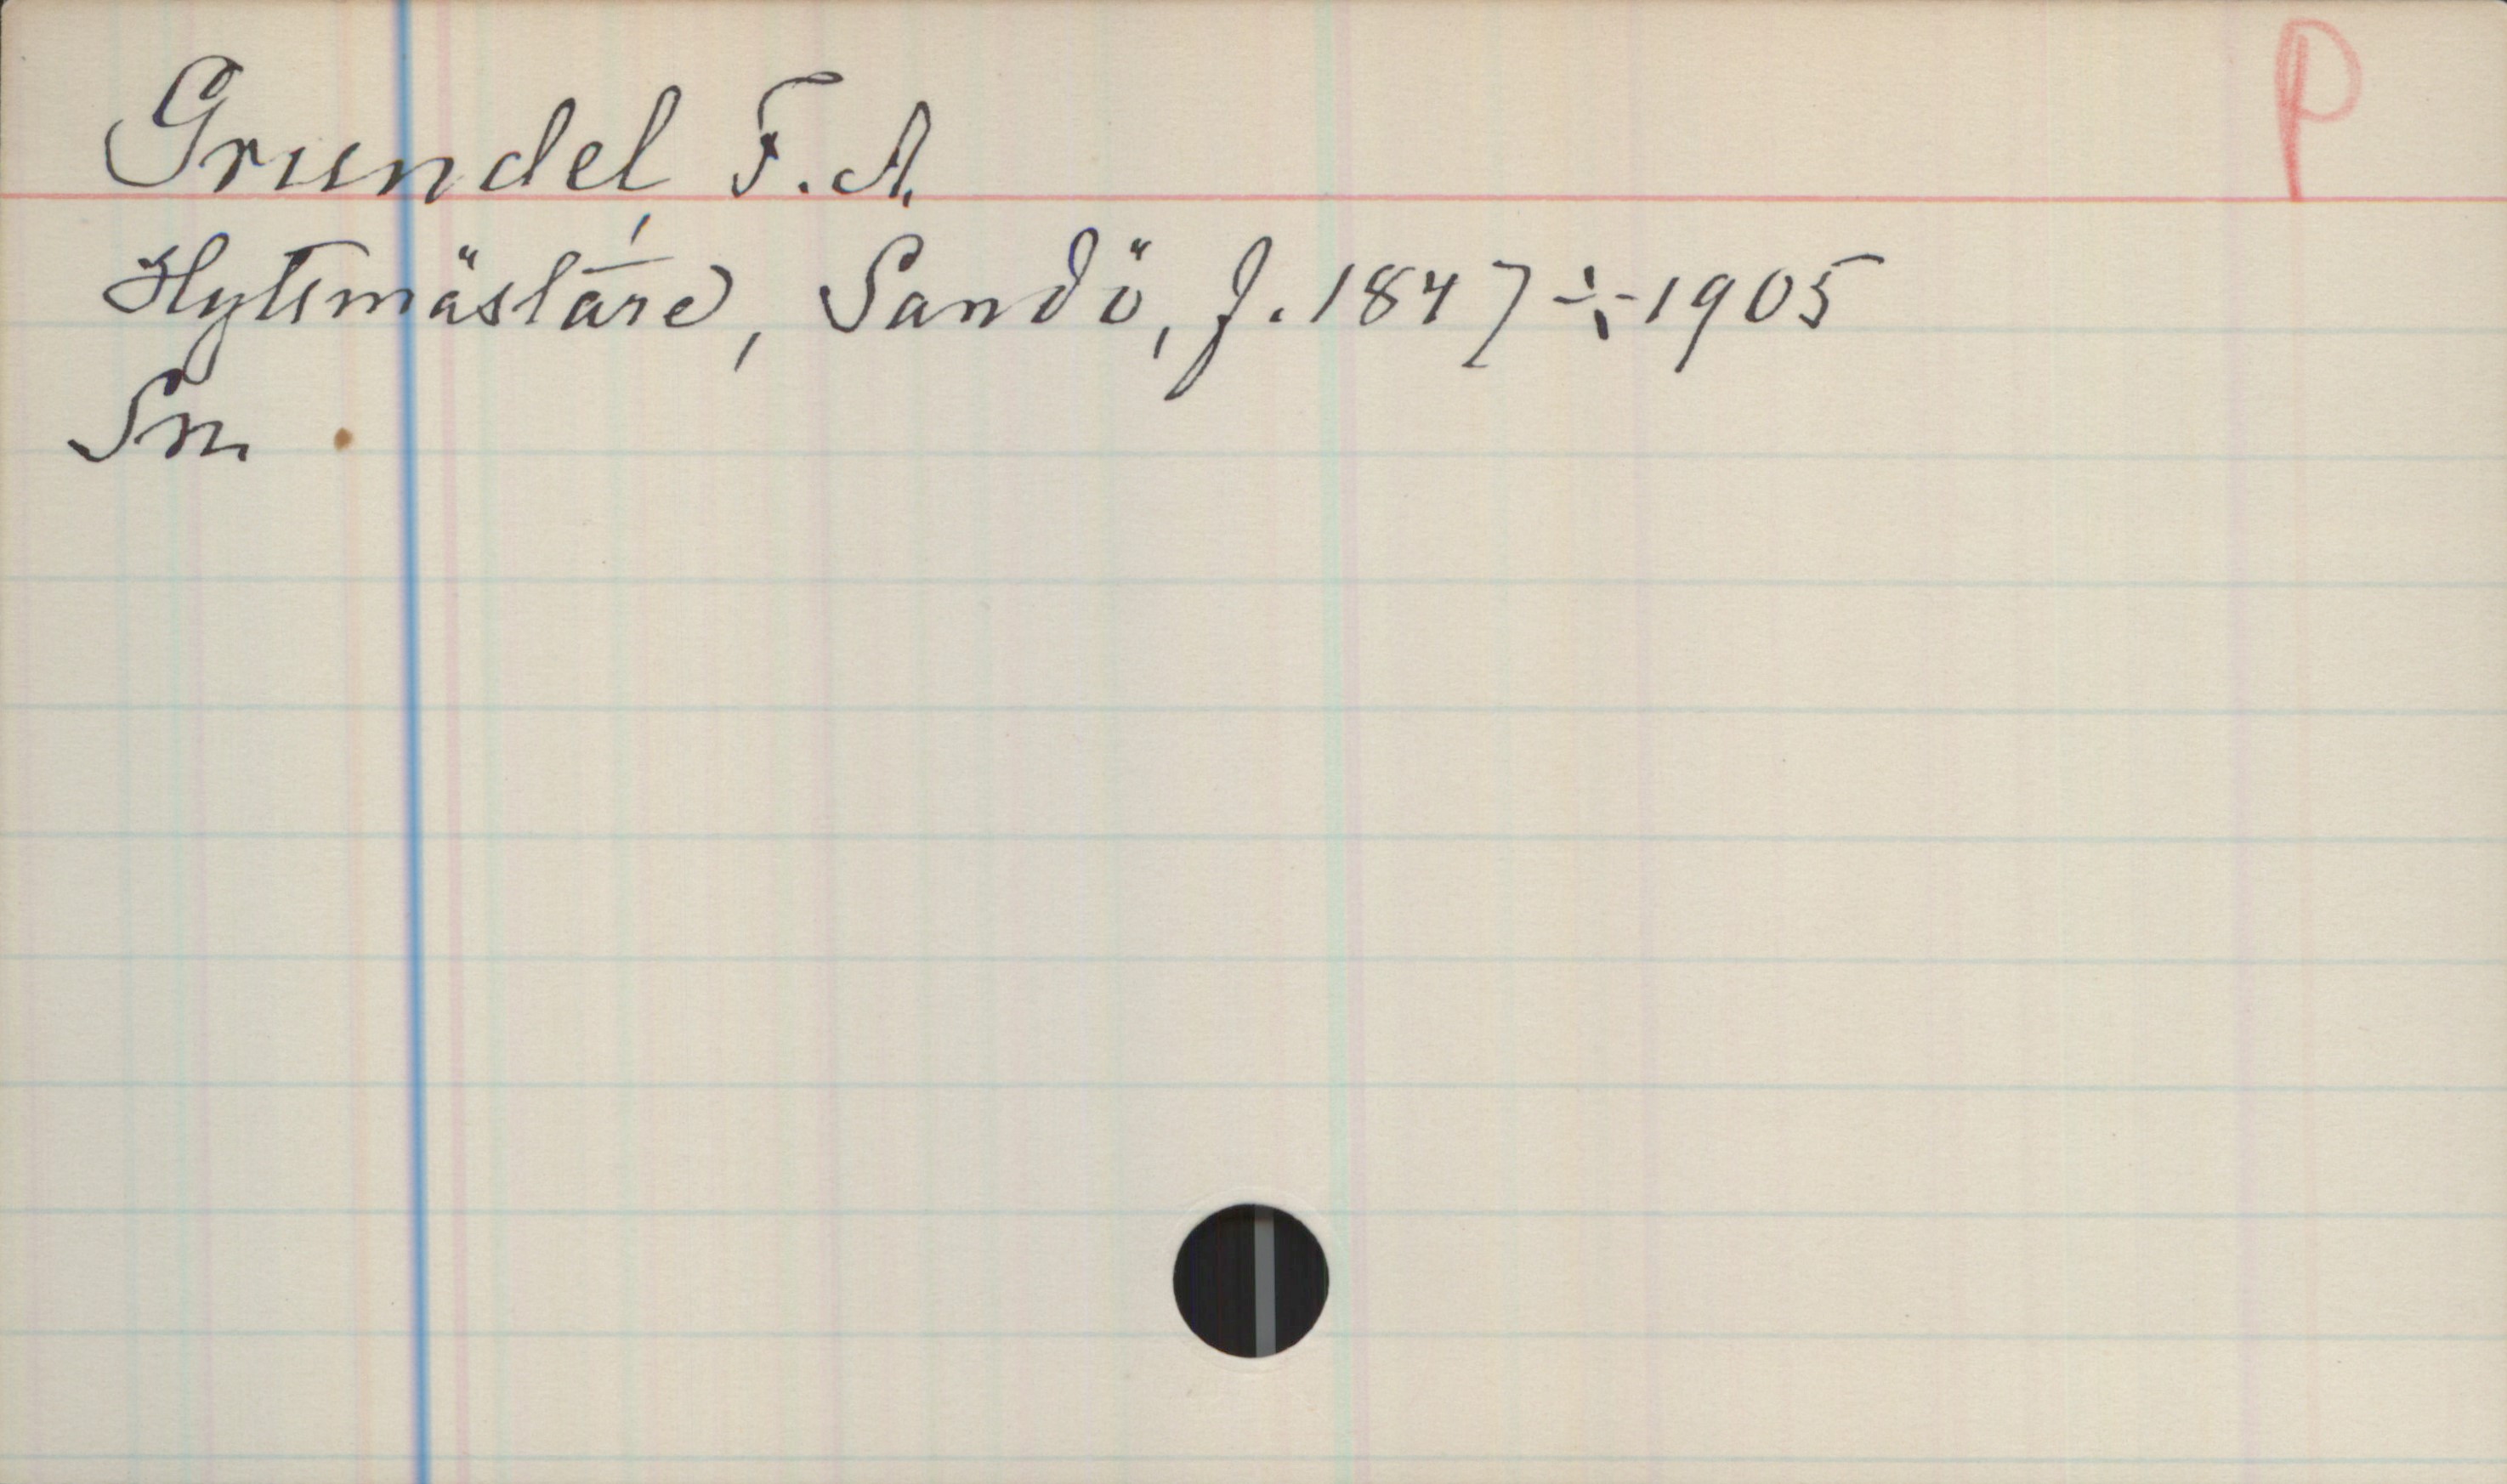 P
Grundel, F. A.
Hyttmästare, Sandö, f. 1847 ÷ 1905
Sm.